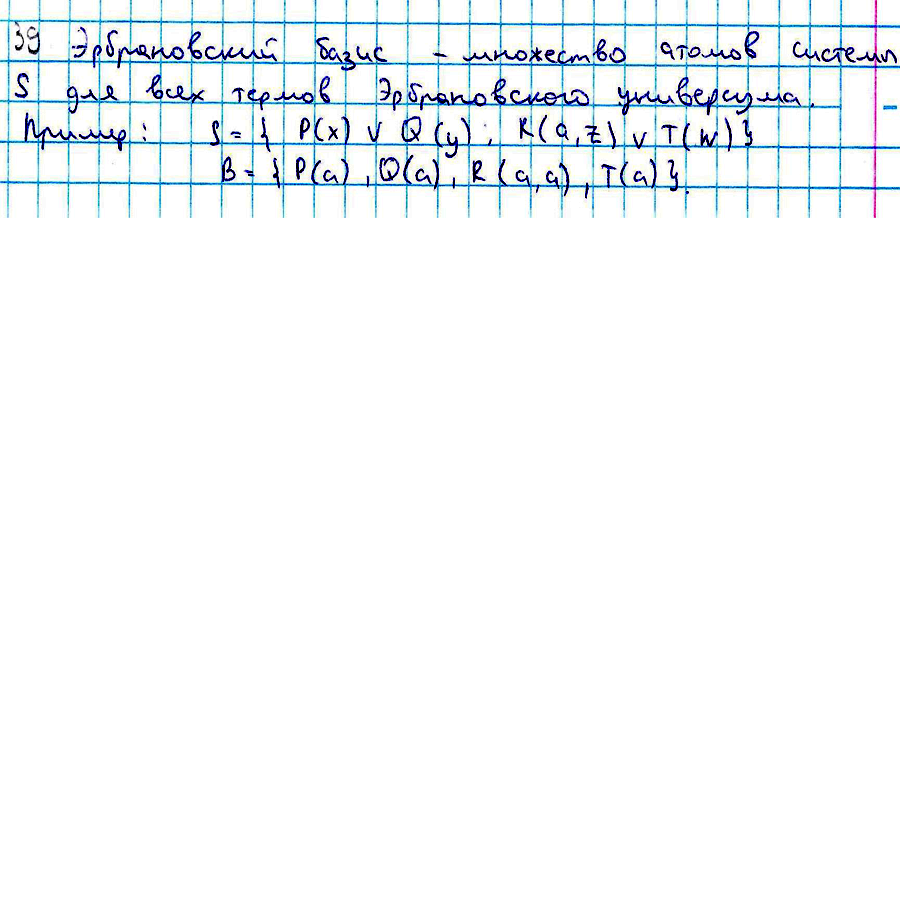 39 Эрбрановский базис - множество атомов системы
S для всех термов Эрбрановского универсума.
Пример: S = { P(x) ∨ Q(y); R(a,z) ∨ T(w) }
B = { P(a), Q(a), R(a,a), T(a) }.